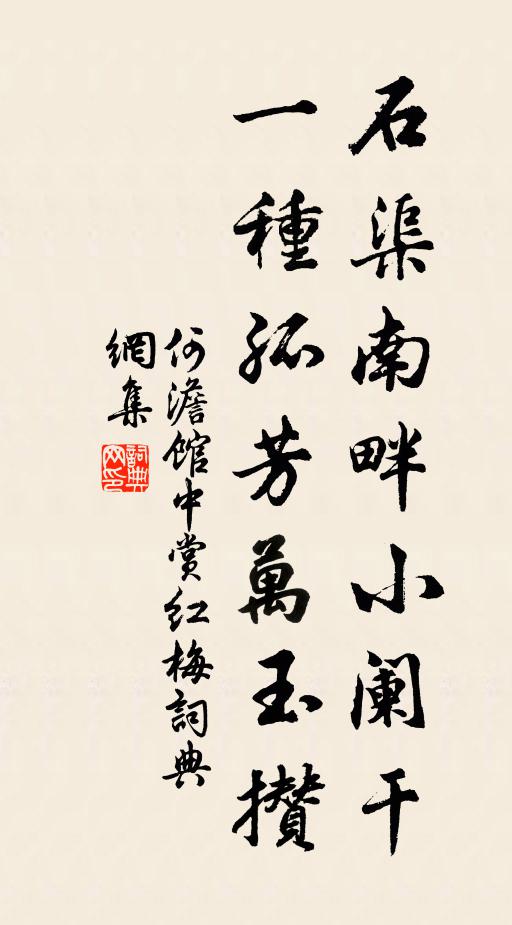 石渠南畔小阑干
一種孤芳萬玉攅
何澹館中賞红梅詞典
網集
詞典
网印